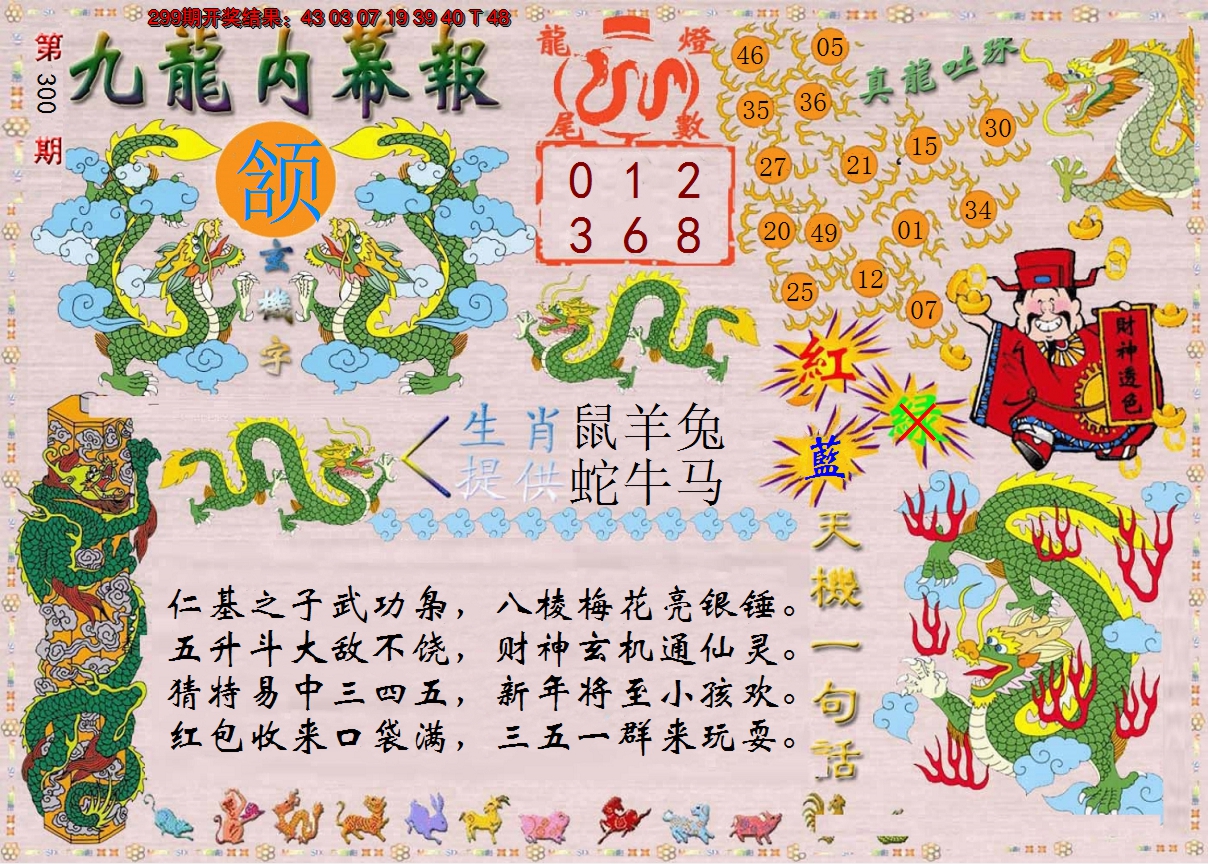 299期开奖结果：43 03 07 19 39 40 T 48
第
300
期
九龍内幕報
颔
玄
機
字
龍 燈
尾 數
0 1 2
3 6 8
真龍吐珠
46 05
35 36
27 21 15 30
20 49 01 34
25 12 07
財神透色
紅
绿
藍
生肖 鼠羊兔
提供 蛇牛马
仁基之子武功枭，八棱梅花亮银锤。
五升斗大敌不饶，财神玄机通仙灵。
猜特易中三四五，新年将至小孩欢。
红包收来口袋满，三五一群来玩耍。
天機一句话